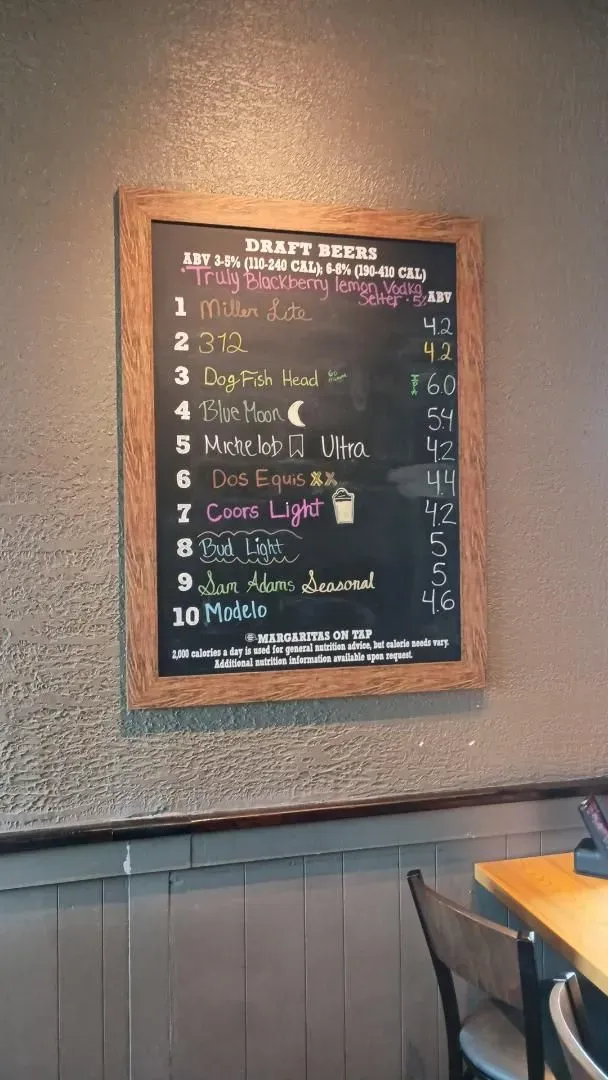 DRAFT BEERS
ABV 3-5% (110-240 CAL); 6-8% (190-410 CAL)
·Truly Blackberry lemon Vodka
Selter · 5%
ABV
1 Miller Lite 4.2
2 312 4.2
3 DogFish Head 60 IPA 6.0
4 Blue Moon 5.4
5 Michelob Ultra 4.2
6 Dos Equis XX 4.4
7 Coors Light 4.2
8 Bud Light 5
9 Sam Adams Seasonal 5
10 Modelo 4.6
MARGARITAS ON TAP
2,000 calories a day is used for general nutrition advice, but calorie needs vary.
Additional nutrition information available upon request.